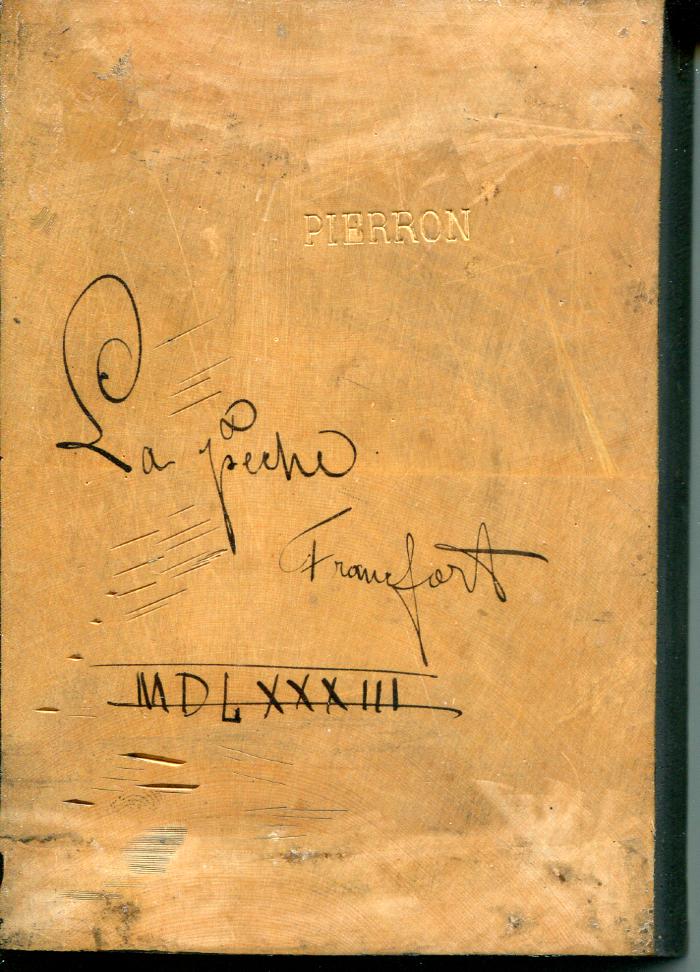 PIERRON
La pêche
Francfort
MDLXXXIII